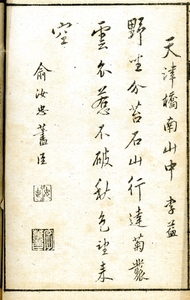 天津橋南山中 李益
野坐分苔石山行遶菊叢
雲衣惹不破秋色望来
空
俞汝忠藎臣